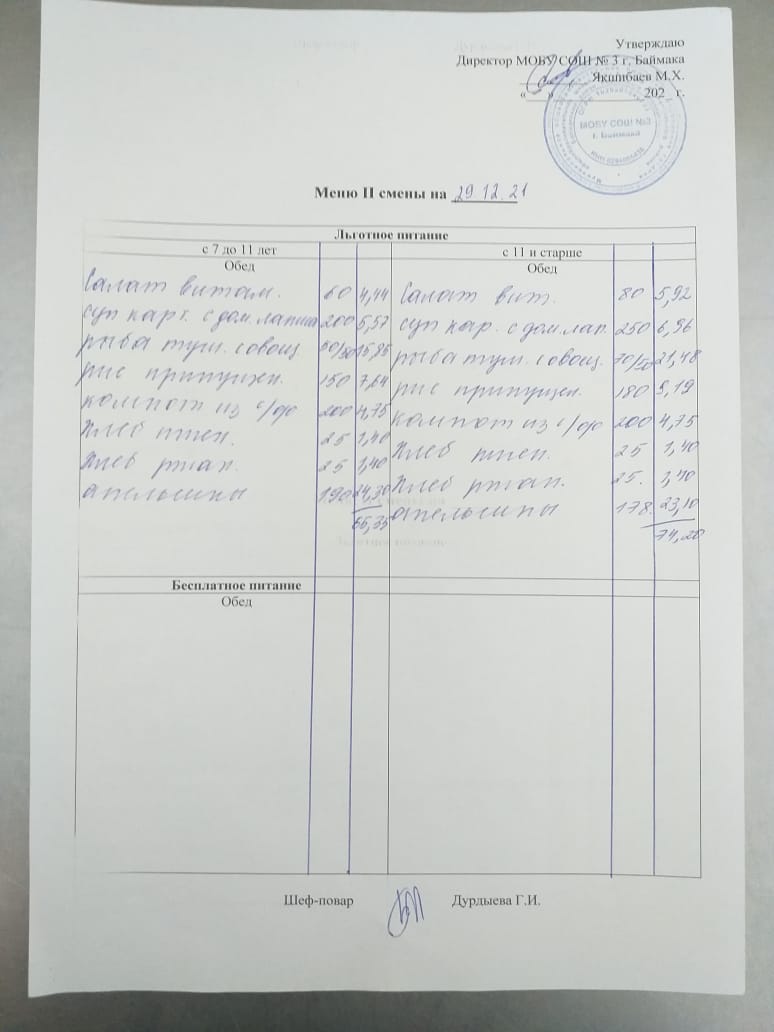 Утверждаю
Директор МОБУ СОШ № 3 г. Баймака
Якшибаев М.Х.
« » 202 г.
МОБУ СОШ №3
г. Баймака
Меню II смены на 29.12.21
Льготное питание
с 7 до 11 лет с 11 и старше
Обед Обед
Салат витам. 60 4,44 Салат вит. 80 5,92
суп карт. с дом. лапша 200 5,57 суп кар. с дом. лап. 250 6,96
рыба туш. с овощ 16,85 рыба туш. с овощ. 70/50 21,48
рис припущен. 150 7,64 рис припущен. 180 9,19
компот из с/ф 200 4,75 компот из с/ф 200 4,75
Хлеб пшен. 25 1,40 Хлеб пшен. 25 1,40
Хлеб ржан. 25 1,40 Хлеб ржан. 25. 1,40
апельсины 190 24,30 апельсины 178. 23,10
66,35 74,20
Бесплатное питание
Обед
Шеф-повар Дурдыева Г.И.